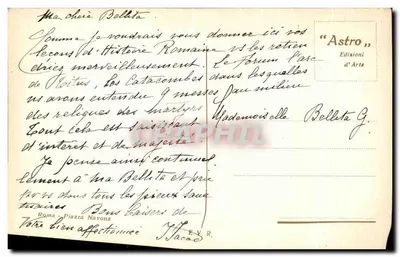 Ma chère Bellita
Comme je voudrais vous donner ici vos
leçons d'Histoire Romaine vs les retien
driez merveilleusement. Le forum l'arc
de Titus, Les Catacombes dans lesquelles
ns avons entendu 9 messes au milieu
des reliques des martyrs
Tout cela est saisissant
d'intérêt et de majesté.
Je pense ainsi continuel
lement à ma Bellita et prie
pr vs dans tous les pieux sanc
tuaires. Bons baisers de
Votre bien affectionnée
Roma - Piazza Navona
E. V. R.
"Astro"
Edizioni
d'Arte
Mademoiselle Bellita G.